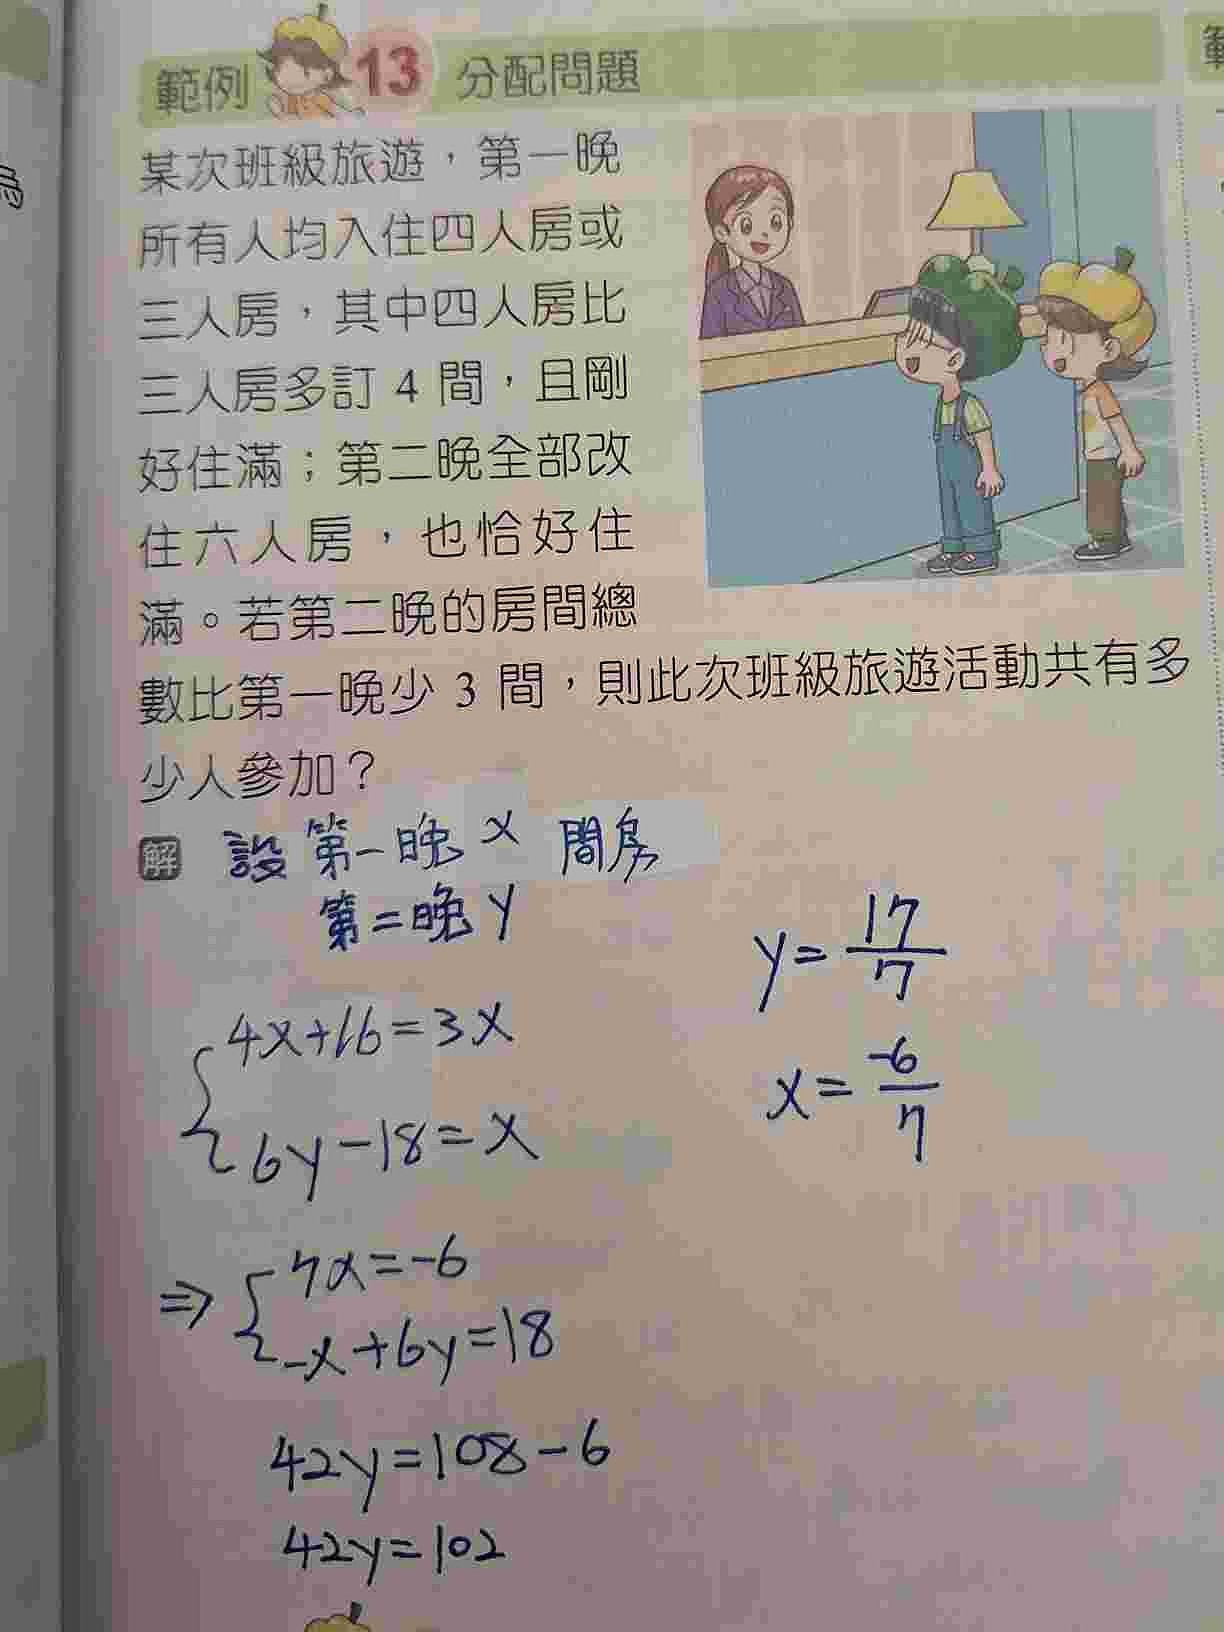 範例 13 分配問題
某次班級旅遊，第一晚
所有人均入住四人房或
三人房，其中四人房比
三人房多訂 4 間，且剛
好住滿；第二晚全部改
住六人房，也恰好住
滿。若第二晚的房間總
數比第一晚少 3 間，則此次班級旅遊活動共有多
少人參加？
解 設第一晚 x 間房
第二晚 y
4x+16=3x
6y-18=x
⇒ 7x=-6
-x+6y=18
42y=108-6
42y=102
y=17/7
x=-6/7